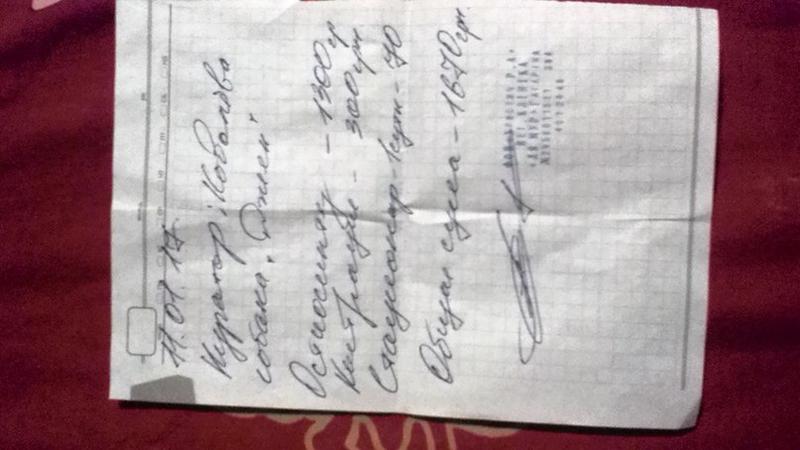 11.01.17
Куратор: Ковалёва
собака "Джей"
Остеосинтез - 1300 гр
Кастрация - 300 грн
Стационар - 1сут - 70
Общая сумма - 1670 грн.